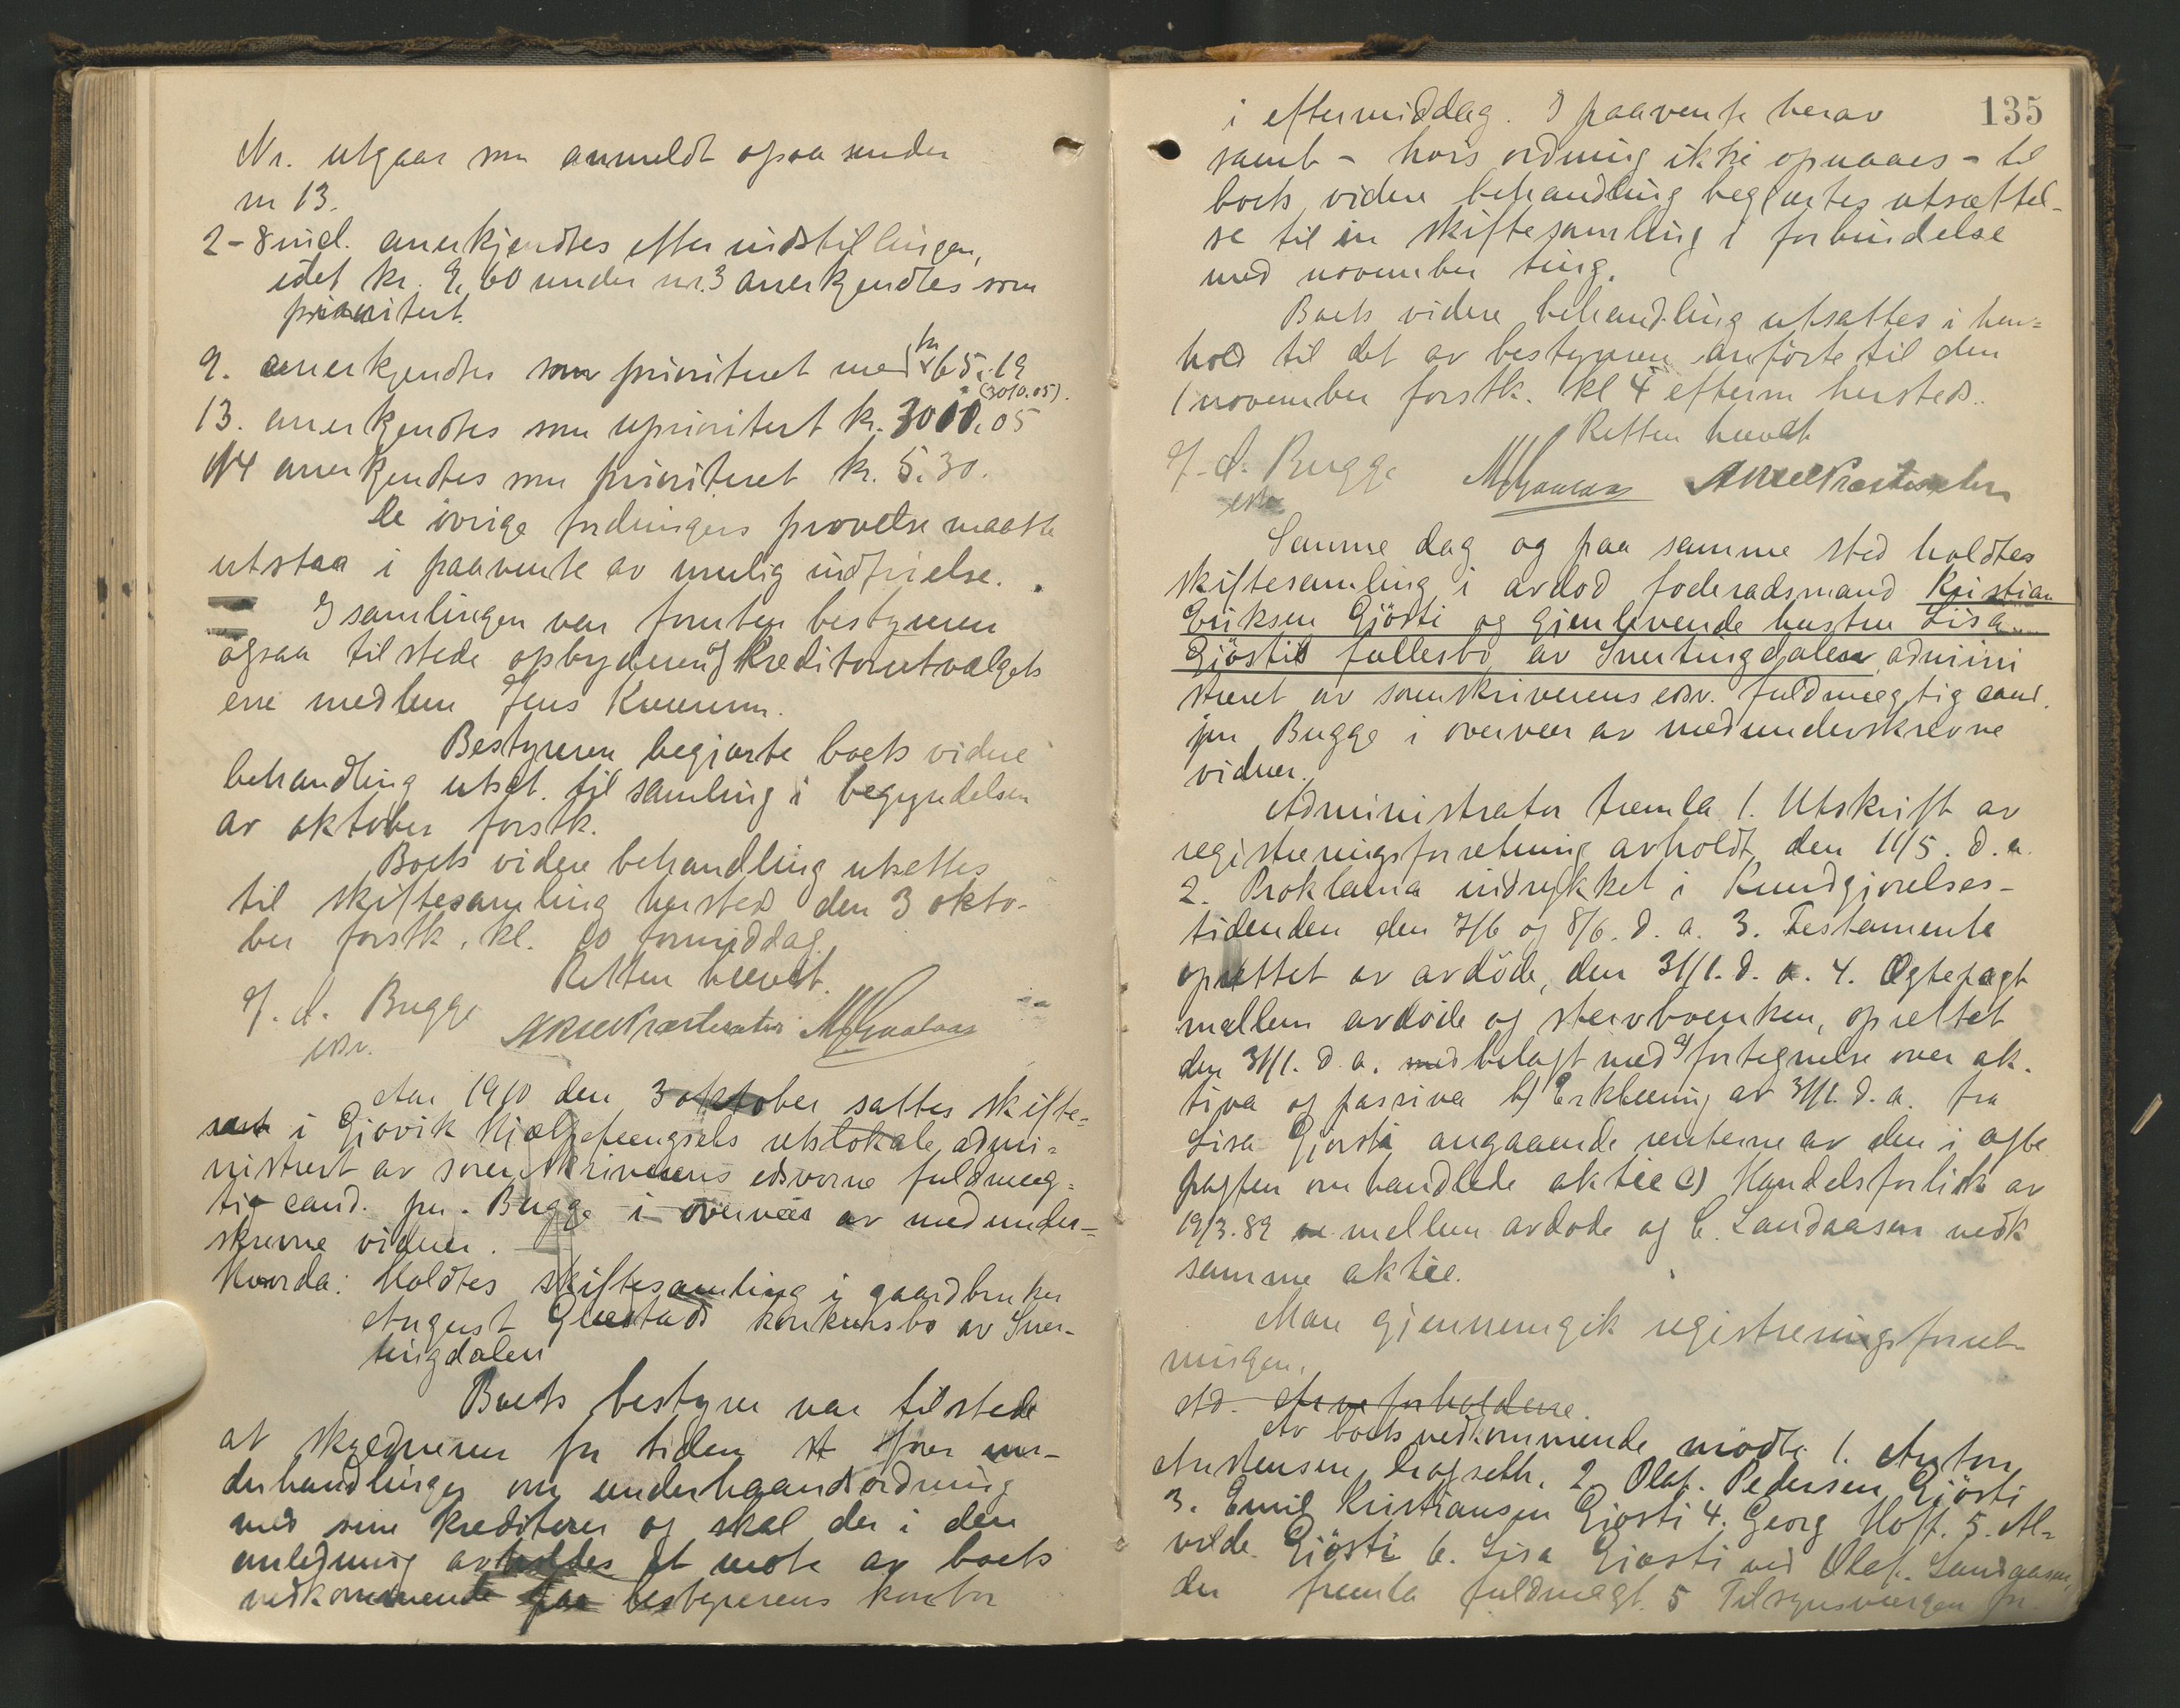 Nr. utgaar som anmeldt ogsaa under
nr 13.
2-8 incl. anerkjendtes efter indstillingen,
idet kr. 9,60 under nr. 3 anerkjendtes som
prioritert.
9. anerkjendtes som prioriteret med kr 65.19
(3010.05).
13. anerkjendtes som uprioritert kr. 3010.05
14 anerkjendtes som prioriteret kr. 5.30.
De övrige fordringers prövelse maatte
utstaa i paavente av mulig indfrielse.
I samlingen var foruten bestyreren
ogsaa tilstede opbyderen og Kreditorutvalgets
ene medlem Jens
Bestyreren begjærte boets videre
behandling utsat til samling i begyndelsen
av oktober førstk.
Boets videre behandling utsettes
til skiftesamling hersteds den 3 okto-
ber førstk. kl. 10 formiddag.
Retten hævet.
J. A. Bugge
edsv.
Aar 1910 den 3 oktober sattes skifte-
ret i Gjøvik Hjælpefængsels retslokale, admi-
nistrert av sorenskriverens edsvorne fuldmæg-
tig cand. jur. Bugge i overvær av medunder-
skrevne vidner.
Hvorda: Holdtes skiftesamling i gaardbruker
August konkursbo av Sner-
tingdalen
Boets bestyrer var tilstede
at skyldneren for tiden fører un-
derhandlinger om underhaandsordning
med sine kreditorer og skal der i den
anledning avholdes et møte av boets
vedkommende paa bestyrerens kontor
135
i eftermiddag. I paavente herav
samt - hvis ordning ikke opnaaes - til
boets videre behandling begjærtes utsættel-
se til en skiftesamling i forbindelse
med november ting.
Boets videre behandling utsattes i hen-
hold til det av bestyreren anførte til den
1 november førstk. kl 4 efterm hersteds.
Retten hævet
J. A. Bugge
edsv
Samme dag og paa samme sted holdtes
skiftesamling i avdød føderaadsmand Kristian
Eriksen Gjösti og gjenlevende hustru Lisa
Gjöstis fællesbo av Snertingdalen, admini
streret av sorenskriverens edsv. fuldmægtig cand.
jur Bugge i overvær av medunderskrevne
vidner.
Administrator fremla 1. Utskrift av
registreringsforretning avholdt den 11/5. d. a.
2. Proklama indrykket i Kundgjørelses-
tidenden den 7/6 og 8/6. d. a. 3. Testamente
oprettet av avdöde, den 31/1. d. a. 4. Egtepagt
mellem avdöde og stervboenken, oprettet
den 31/1. d. a. med belagt med a) fortegnelse over ak-
tiva og passiva b) Erklæring av 31/1. d. a. fra
Lisa Gjøsti angaaende renterne av den i egte
pagten omhandlede aktie c) Handelsforlik av
19/3.89 mellem avdøde og C. Landaasen vedk
samme aktie.
Man gjennemgik registreringsforret-
ningen.
Ad. Arveforholdene.
Av boets vedkommende mødte 1. Anton
2. Olaf Pedersen Gjösti
3. Emil Kristiansen Gjösti 4. Georg Hoff. 5. Al-
vilde Gjösti 6. Lisa Gjøsti ved Olaf Landaasen,
der fremla fuldmagt. 5 Tilsynsværgen for